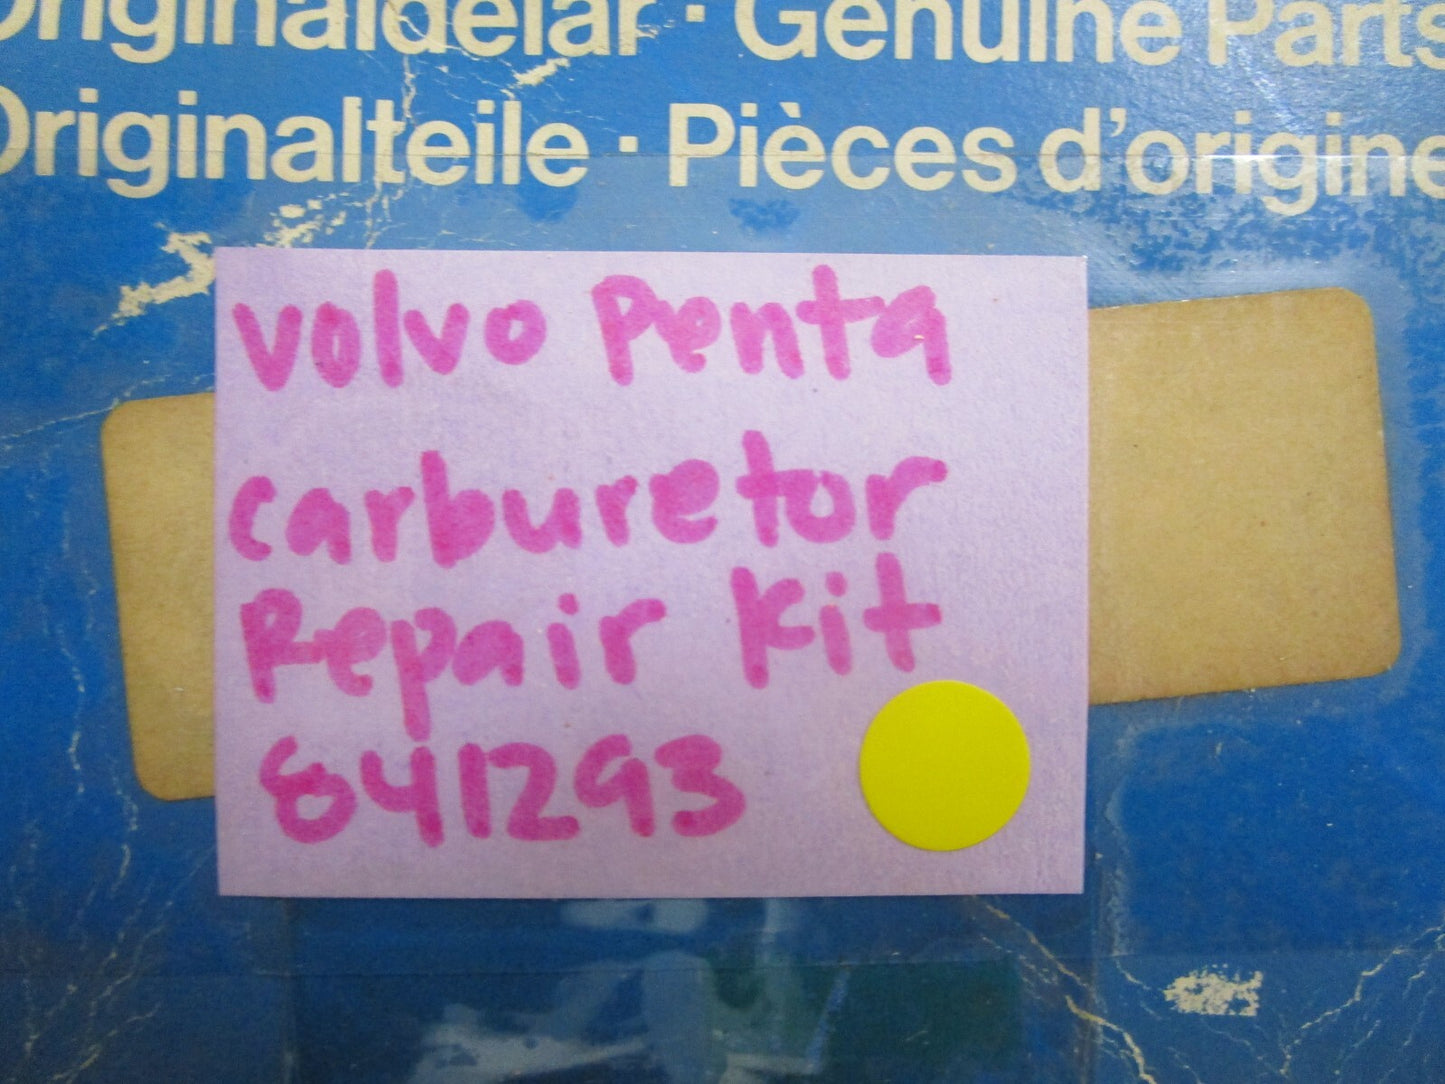 Originaldelar · Genuine Parts
Originalteile · Pièces d'origine
Volvo Penta
carburetor
Repair Kit
841293